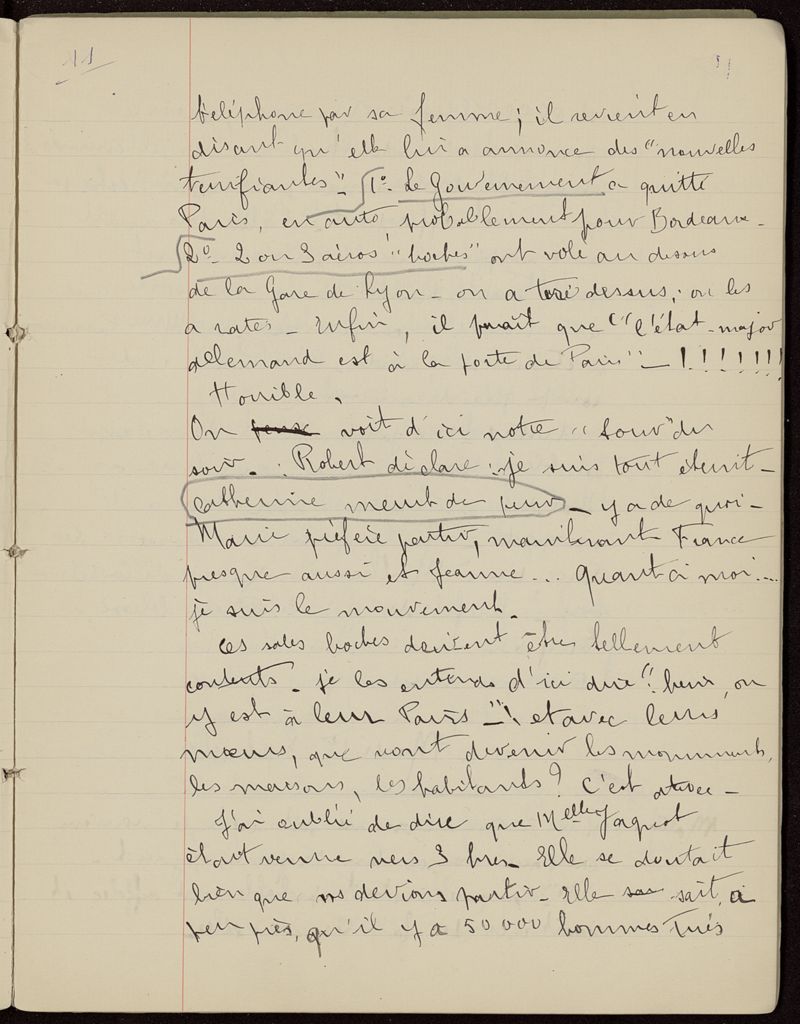 11
téléphone par sa femme ; il revient en
disant qu'elle lui a annoncé des "nouvelles
terrifiantes" - 1º- Le Gouvernement a quitté
Paris, en auto, probablement pour Bordeaux -
2º- 2 ou 3 aéros "boches" ont volé au dessus
de la Gare de Lyon - on a tiré dessus ; on les
a ratés - Enfin, il paraît que "l'état-major
allemand est à la porte de Paris" - ! ! ! ! ! ! !
Horrible.
On voit d'ici notre du
soir. Robert déclare : je suis tout
Catherine meurt de peur - y a de quoi -
Marie préfère partir, maintenant France
presque aussi et Jeanne... Quant à moi....
je suis le mouvement.
Ces sales boches doivent être tellement
contents - je les entends d'ici dire " on
y est à leur Paris - "! et avec leurs
mœurs, que vont devenir les monuments,
les maisons, les habitants ? C'est
J'ai oublié de dire que Melle Jaquot
était venue vers 3 hres - Elle se doutait
bien que ns devions partir - Elle sait, à
peu près, qu'il y a 50 000 hommes tués